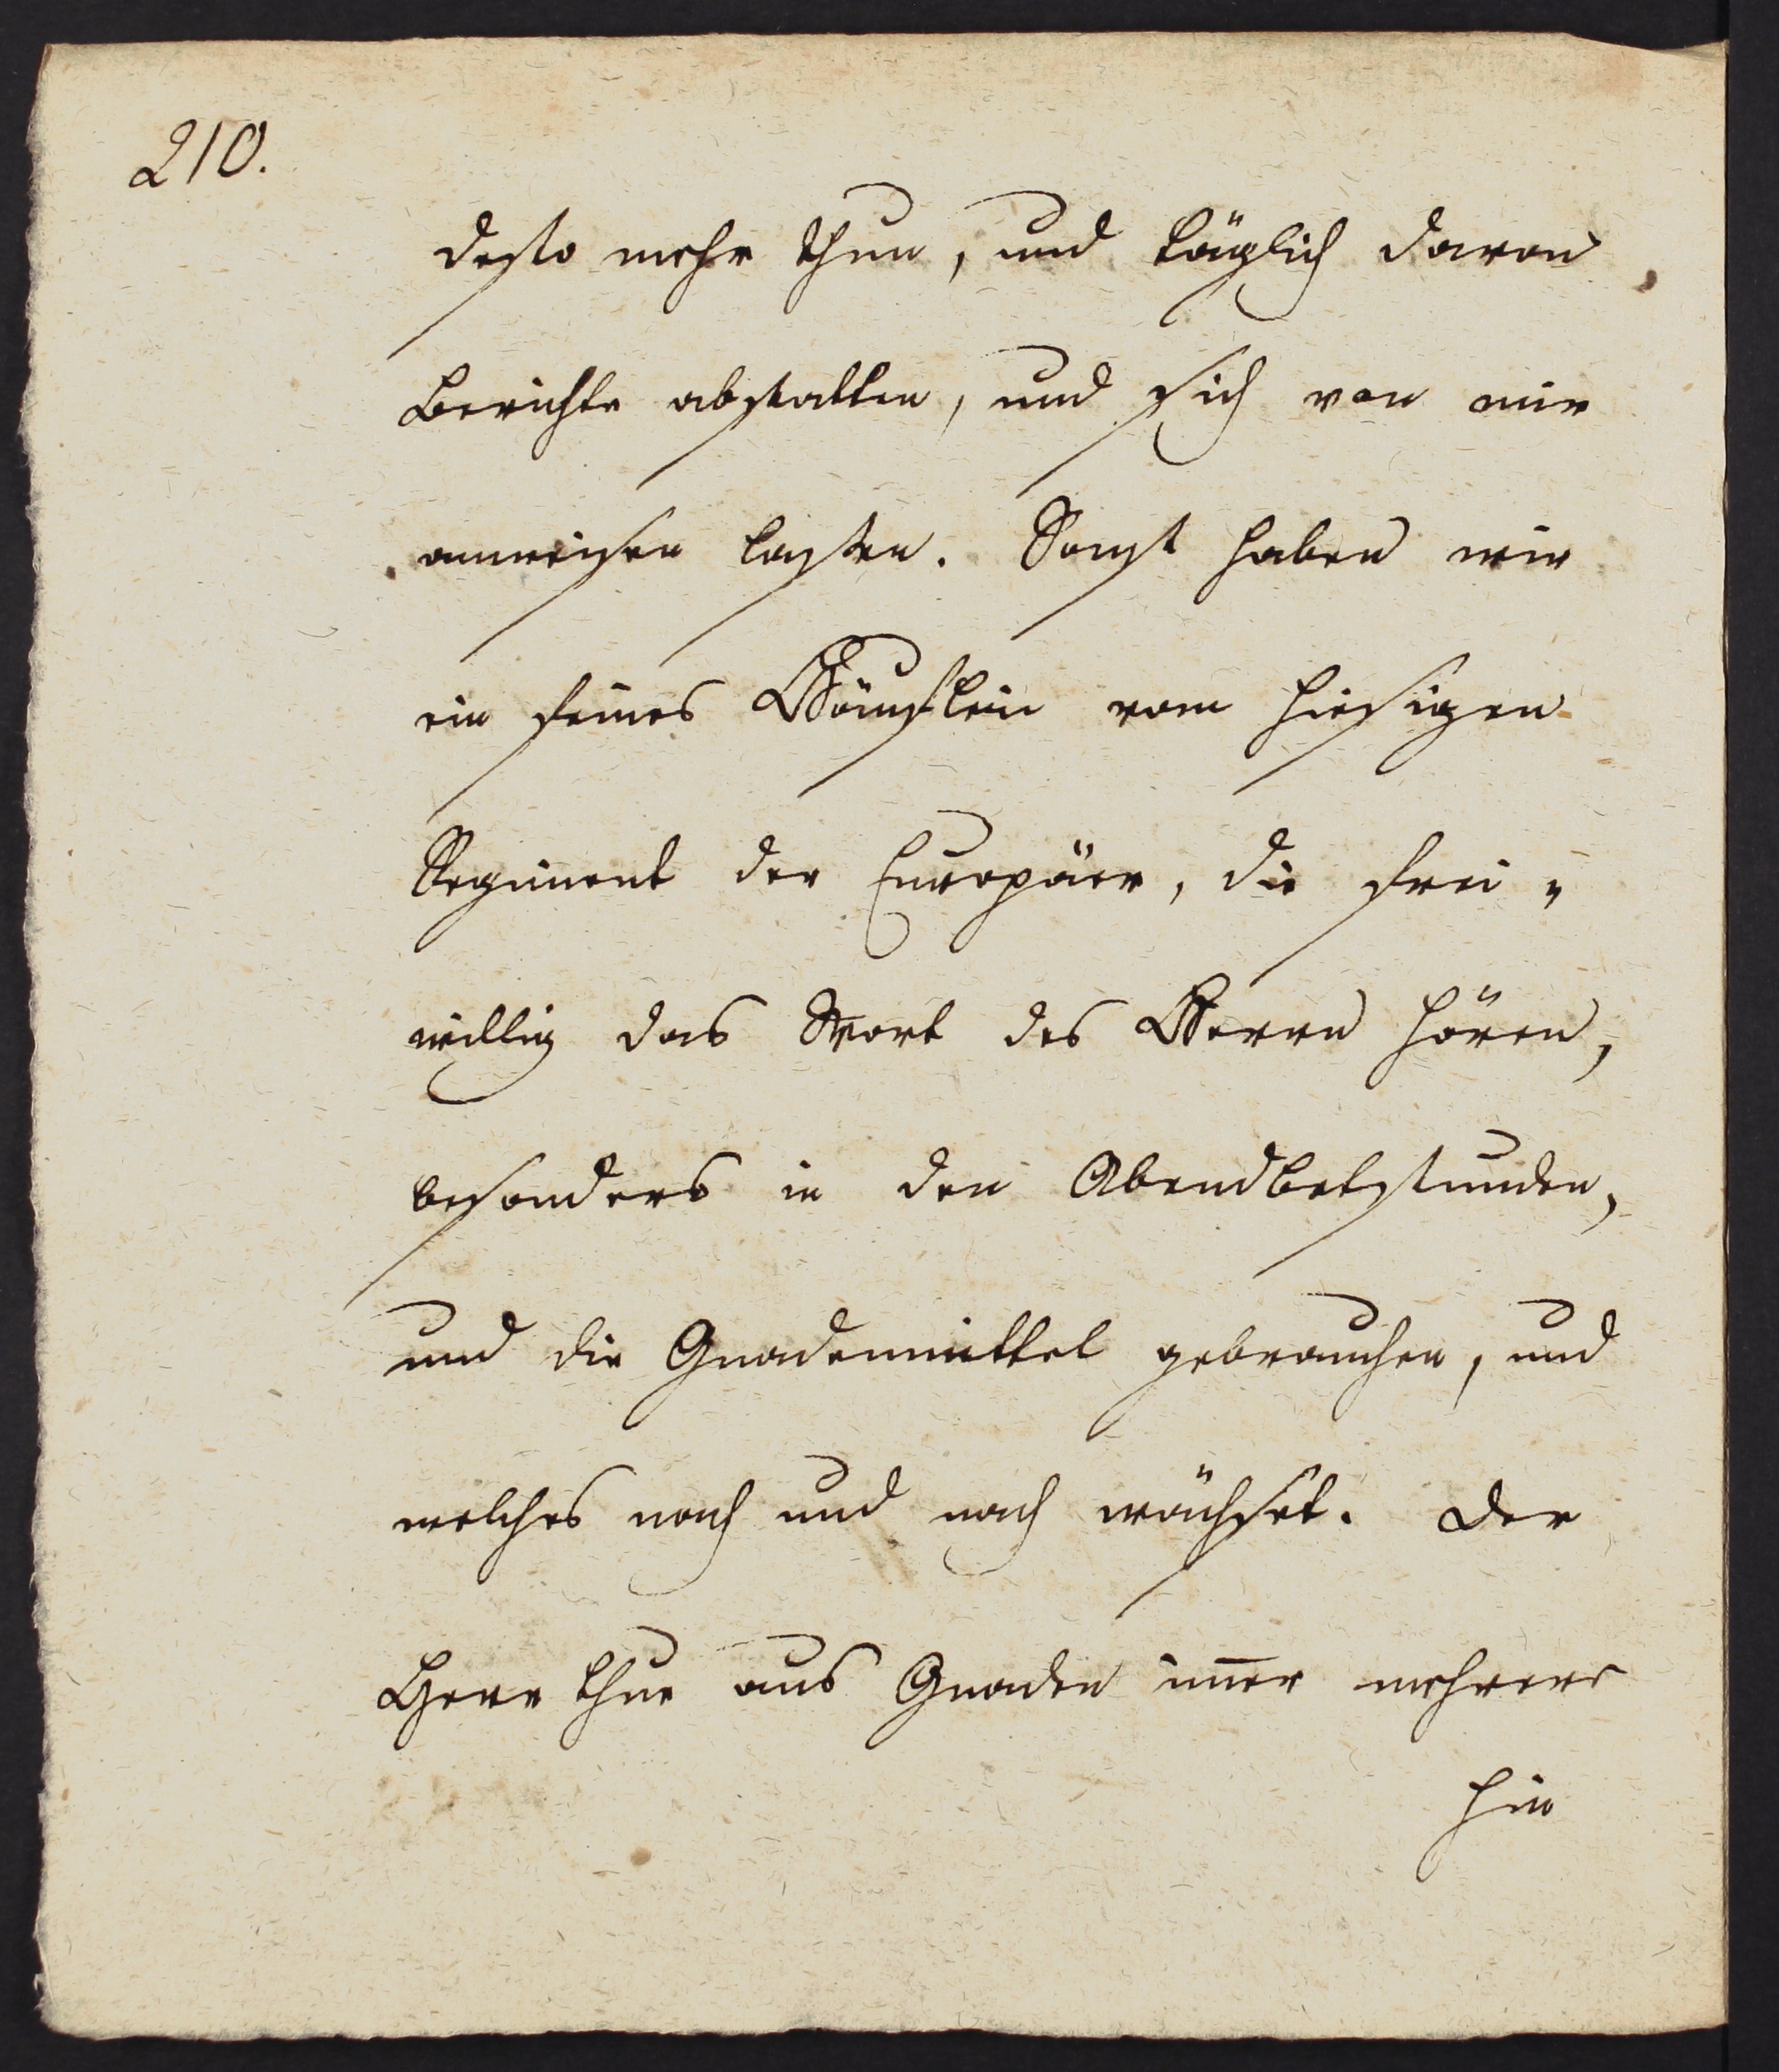 210.
desto mehr thun, und täglich davon
Berichte abstatten, und sich von mir
anweisen lassen. Sonst haben wir
ein feines Häuflein vom hiesigen
Regiment der Europäer, die frei-
willig das Wort des Herrn hören,
besonders in den Abendbetstunden,
und die Gnadenmittel gebrauchen, und
welches nach und nach wächset. Der
Herr thue aus Gnaden im̄er mehrere
hin